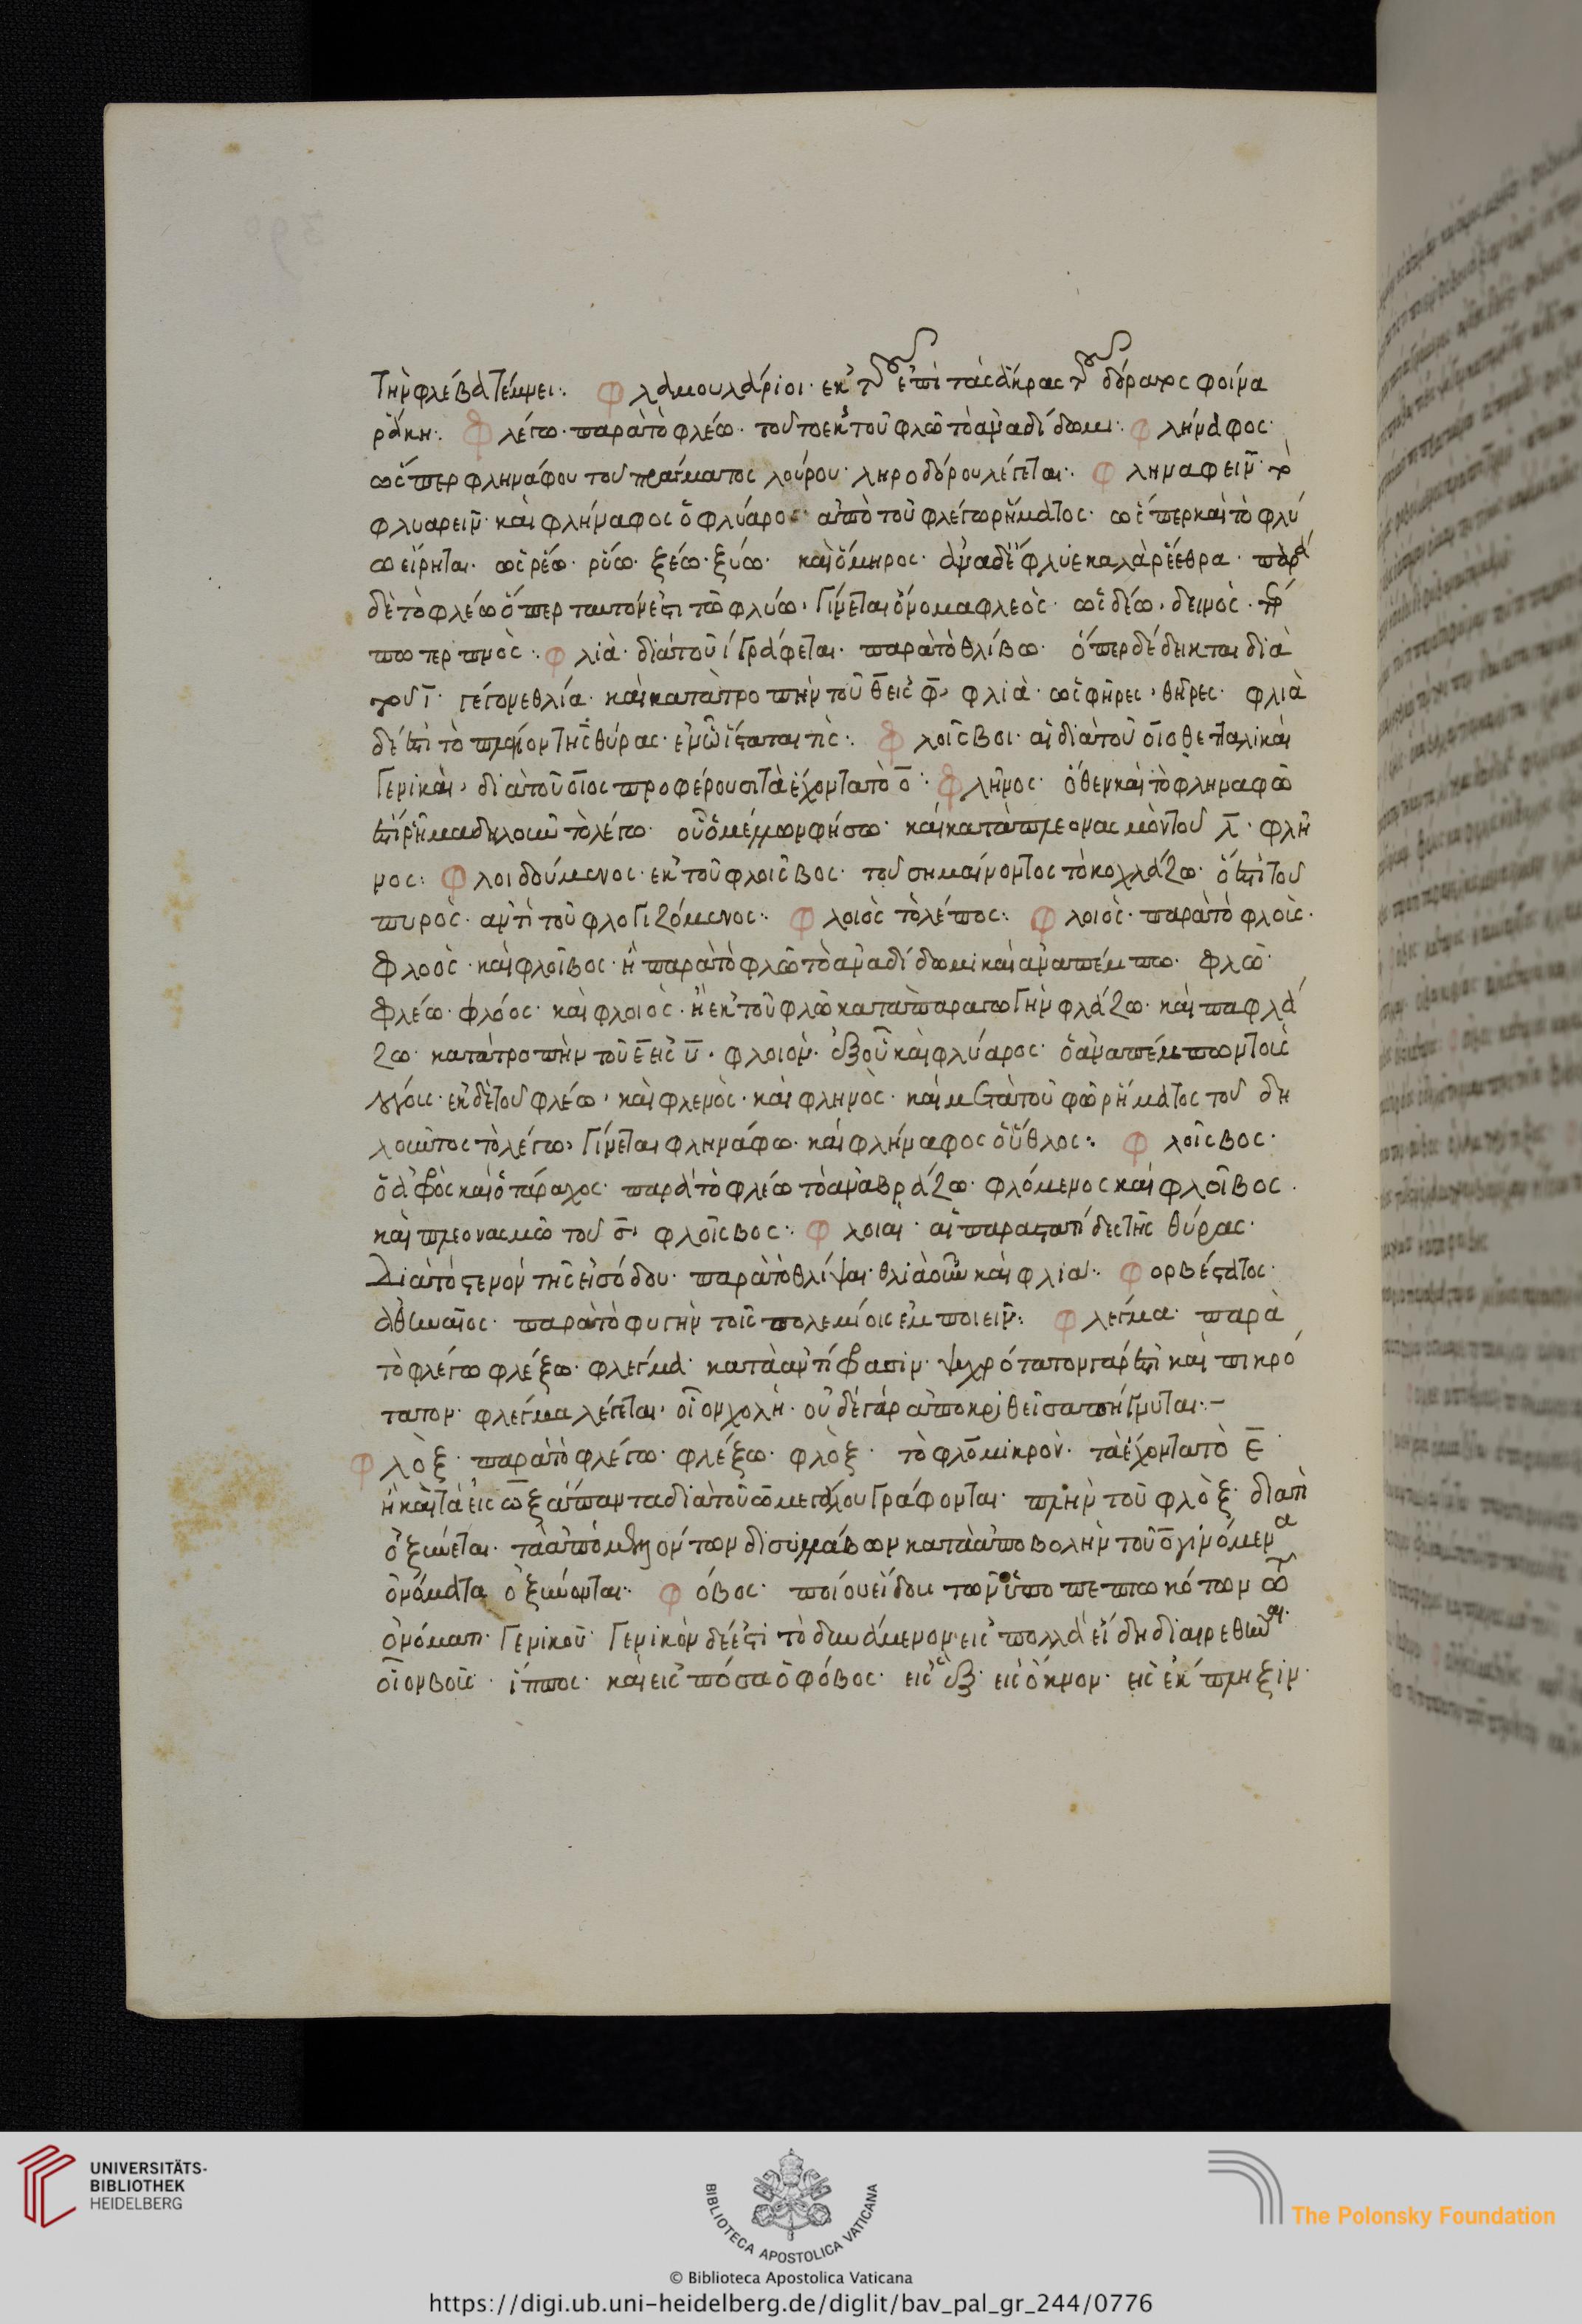 τὴν φλέβα τέμνει· Φλαμουλάριοι· ἐκ τοῦ ἐπὶ τὰς ἄκρας τοῦ δόρατος φοίνα
ράκη· Φλέγω· παρὰ τὸ φλέω· τοῦτο ἐκ τοῦ φλῶ τὸ ἀναδίδωμι· Φλήναφος·
ὥσπερ φληνάφου τοῦ πράγματος λούρου· ληροδόρου λέγεται· Φληναφεῖν· τὸ
φλυαρεῖν· καὶ φλήναφος ὁ φλύαρος· ἀπὸ τοῦ φλέγω ῥήματος· ὥσπερ καὶ τὸ φλύ
ω εἴρηται· ὡς ῥέω· ῥύω· ξέω· ξύω· καὶ ὅμηρος· ἀνὰ δ' ἔφλυε καλὰ ῥέεθρα· παρὰ
δὲ τὸ φλέω ὅπερ ταυτόν ἐστι τῷ φλύω, γίνεται ὄνομα φλεὸς· ὡς δέω, δεινὸς· τέρ
πω τερπνὸς· Φλιὰ· διὰ τοῦ ι γράφεται· παρὰ τὸ θλίβω· ὅπερ δέδεικται διὰ
τοῦ ι· γέγονε θλία· καὶ κατὰ τροπὴν τοῦ θ εἰς φ, φλιὰ· ὡς φῆρες, θῆρες· φλιὰ
δέ ἐστι τὸ πλησίον τῆς θύρας· ἐν ᾧ ἵσταταί τις· Φλοῖσβοι· αἱ διὰ τοῦ οισθεταλικαὶ
γενικαὶ, διὰ τοῦ οιος προφέρουσι τὰ ἔχοντα τὸ ο· Φλῆνος· ὅθεν καὶ τὸ φληναφῶ
ἐστὶ ῥῆμα δηλοῦν τὸ λέγω· οὗ ὁ μέλλων φήσω· καὶ κατὰ πλεονασμὸν τοῦ λ· φλῆ
νος· Φλοιδούμενος· ἐκ τοῦ φλοῖσβος· τοῦ σημαίνοντος τὸ κολλάζω· ὅ ἐστι τοῦ
πυρὸς· ἀντὶ τοῦ φλογιζόμενος· Φλοιὸς τὸ λέπος· Φλοιὸς· παρὰ τὸ φλοὶς·
φλοὸς· καὶ φλοῖβος· ἢ παρὰ τὸ φλῶ τὸ ἀναδίδωμι καὶ ἀναπέμπω· φλῶ·
φλέω· φλόος· καὶ φλοιὸς· ἢ ἐκ τοῦ φλῶ κατὰ παραγωγὴν φλάζω· καὶ παφλά
ζω· κατὰ τροπὴν τοῦ ε εἰς υ· φλοιον· ἐξ οὗ καὶ φλύαρος· ὁ ἀναπέμπων τοὺς
λόγους· ἐκ δὲ τοῦ φλέω, καὶ φλενὸς· καὶ φληνὸς· καὶ μετὰ τοῦ φῶ ῥήματος τοῦ δη
λοῦντος τὸ λέγω, γίνεται φληνάφω· καὶ φλήναφος ὁ ὕθλος· Φλοῖσβος·
ὁ ἀφρὸς καὶ ὁ τάραχος· παρὰ τὸ φλέω τὸ ἀναβράζω· φλόμενος καὶ φλοῖβος·
καὶ πλεονασμῷ τοῦ σ, φλοῖσβος· Φλοιαὶ· αἱ παραστατίδες τῆς θύρας·
διὰ τὸ στενὸν τῆς εἰσόδου· παρὰ τὸ θλίψαι· θλιὰ οὖν καὶ φλιά· Φορβέστατος·
ἀθηναῖος· παρὰ τὸ φυγὴν τοῖς πολεμίοις ἐμποιεῖν· Φλέγμα· παρὰ
τὸ φλέγω φλέξω· φλέγμα· κατὰ ἀντίφασιν· ψυχρότατον γάρ ἐστι καὶ πικρό
τατον· φλέγμα λέγεται, οἷον χολή· οὐδὲ γὰρ ἀποκριθεῖσα πήγνυται·–
Φλὸξ· παρὰ τὸ φλέγω· φλέξω· φλὸξ· τὸ φλο μικρόν· τὰ ἔχοντα τὸ ε
ἢ καὶ τὰ εἰς ωξ ἅπαντα διὰ τοῦ ω μεγάλου γράφονται· πλὴν τοῦ φλὸξ· διατὶ
ὀξύνεται· τὰ ἀπὸ μελλόντων δισυλλάβων κατὰ ἀποβολὴν τοῦ ο γινόμενα
ὀνόματα ὀξύνονται· Φόβος· ποίου εἴδους τῶν ὑποπεπτωκότων τῷ
ὀνόματι· Γενικοῦ· Γενικὸν δέ ἐστι τὸ δυνάμενον εἰς πολλὰ εἴδη διαιρεθῆναι·
οἷον βοῦς· ἵππος· καὶ εἰς πόσα ὁ φόβος· εἰς ἓξ· εἰς ὄκνον· εἰς ἔκπληξιν·
UNIVERSITÄTS-
BIBLIOTHEK
HEIDELBERG
BIBLIOTECA APOSTOLICA VATICANA
The Polonsky Foundation
© Biblioteca Apostolica Vaticana
https://digi.ub.uni-heidelberg.de/diglit/bav_pal_gr_244/0776